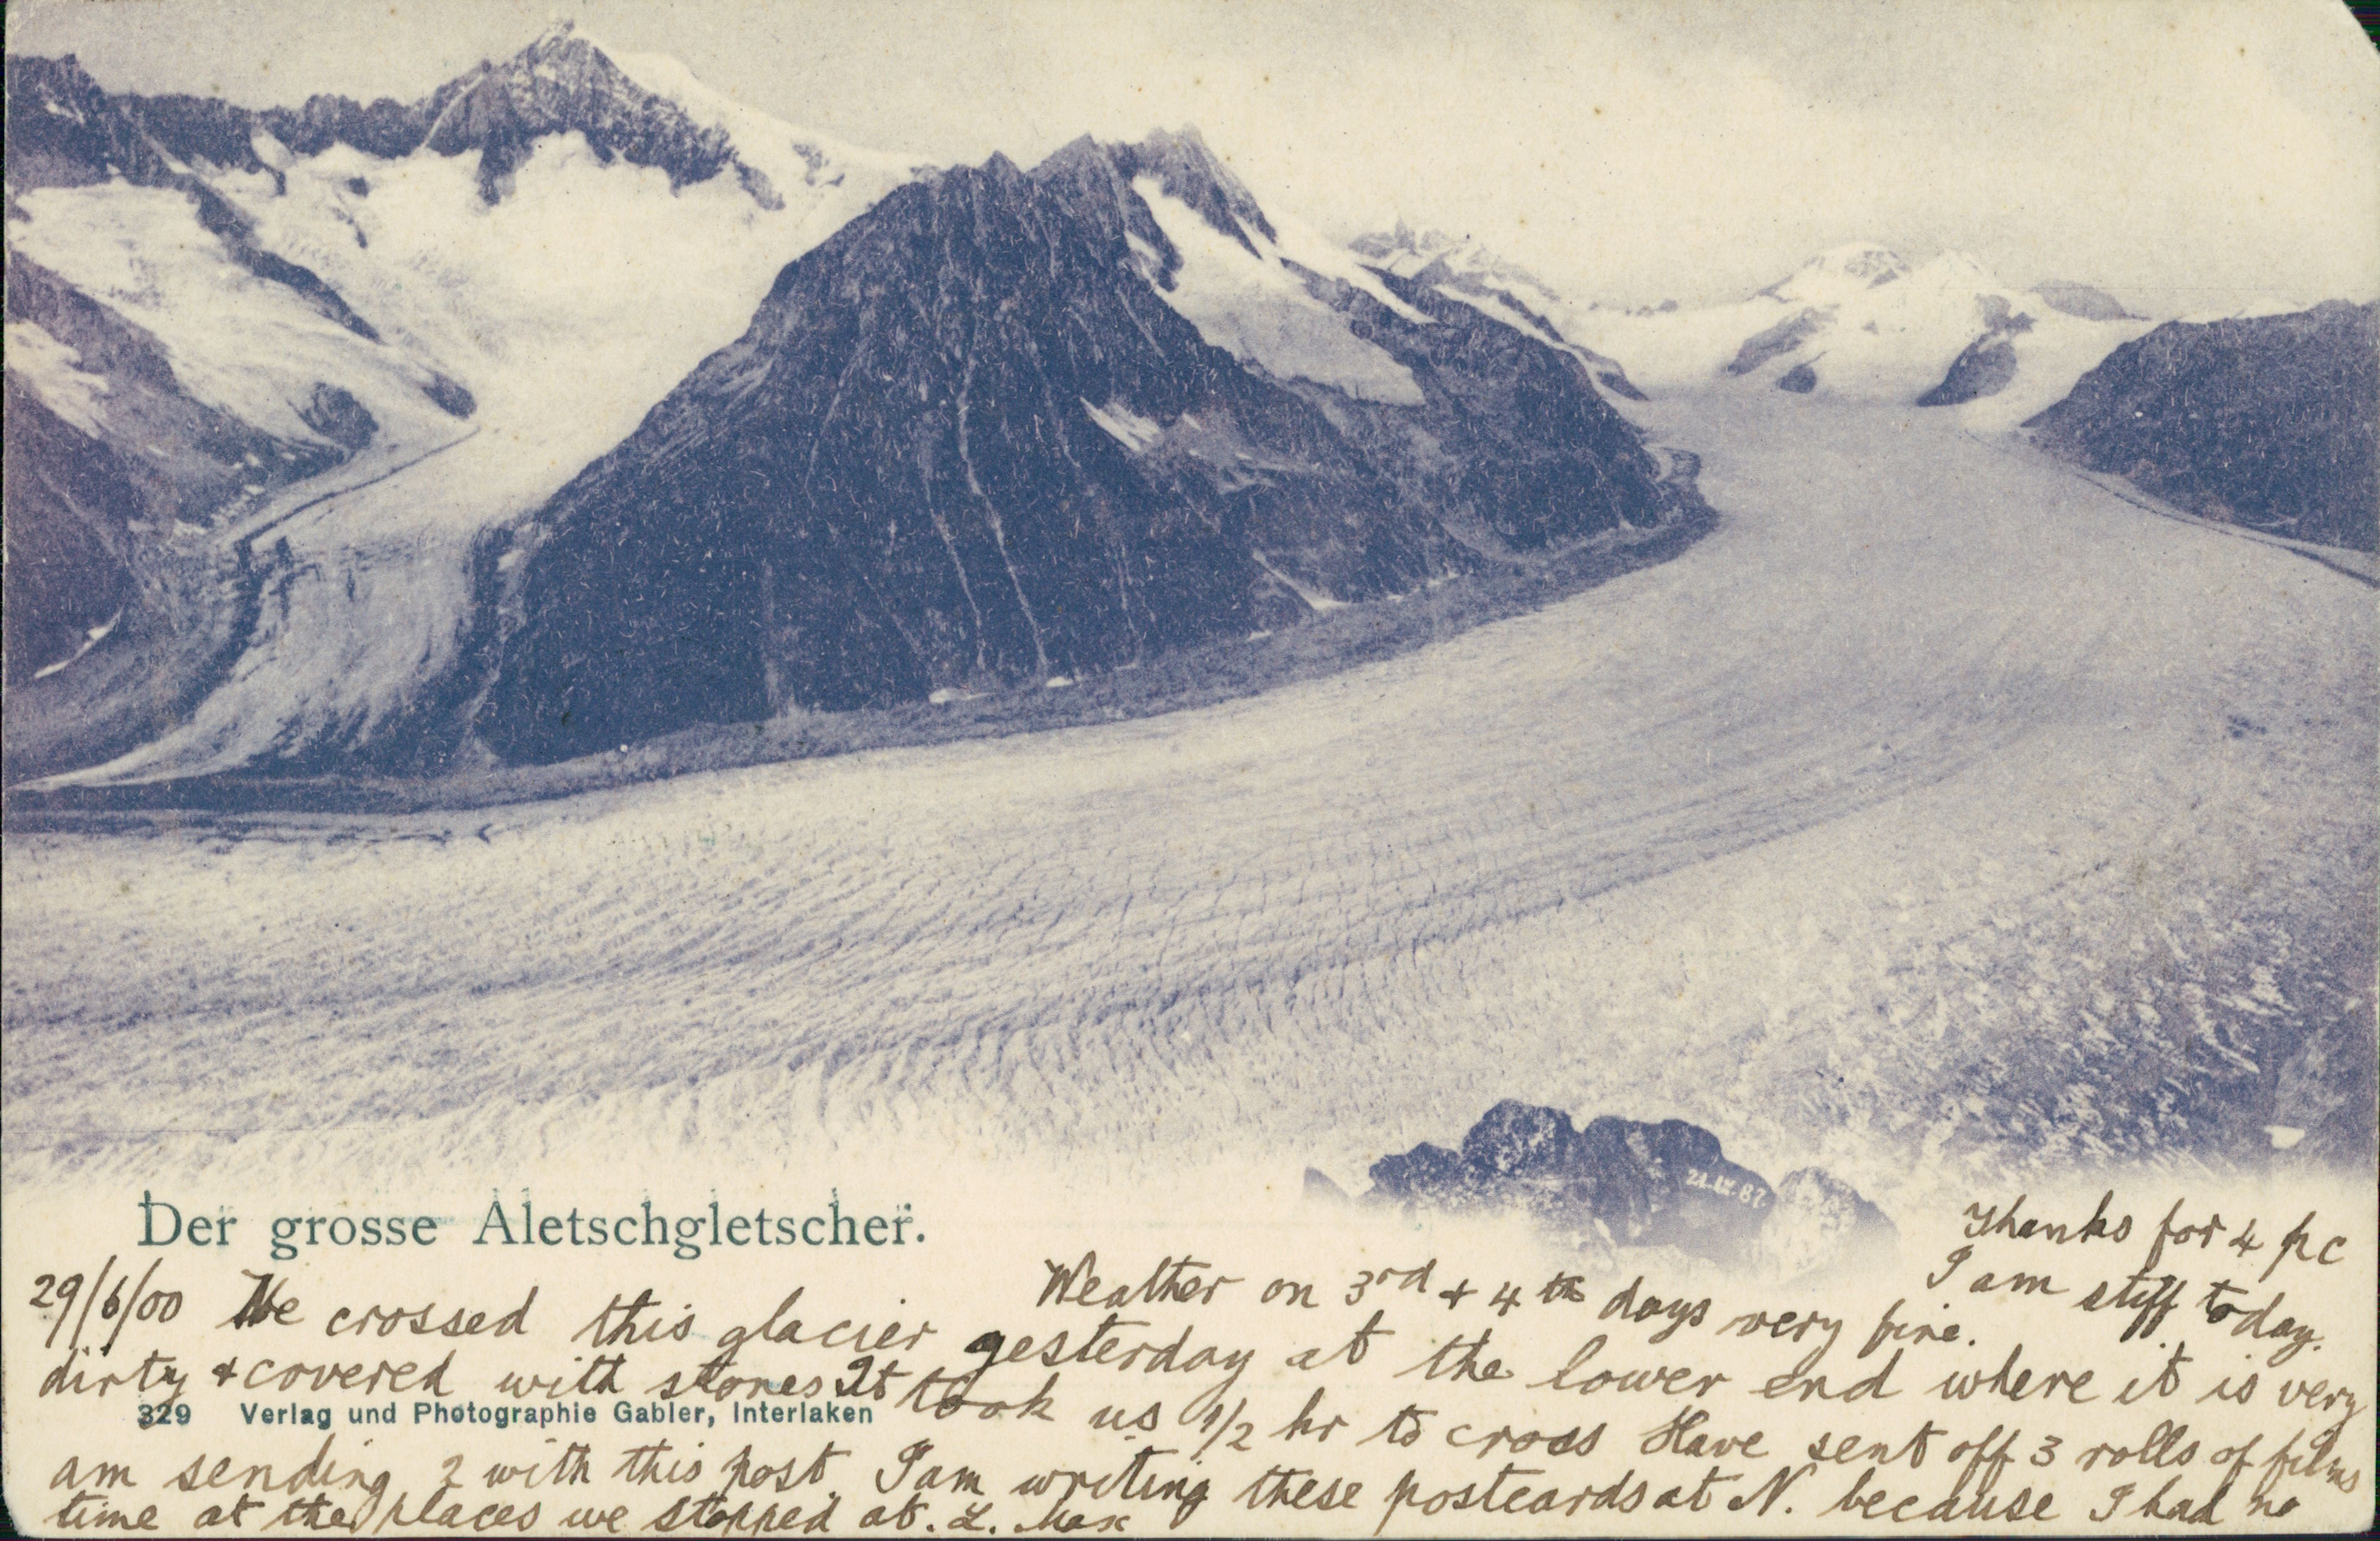 24.IV.87.
Der grosse Aletschgletscher.
Thanks for 4 pc
I am stiff today.
Weather on 3rd + 4th days very fine.
29/6/00 We crossed this glacier yesterday at the lower end where it is very
dirty + covered with stones It took us 1/2 hr to cross Have sent off 3 rolls of films
329 Verlag und Photographie Gabler, Interlaken
am sending 2 with this post. I am writing these postcards at N. because I had no
time at the places we stopped at. L. Max